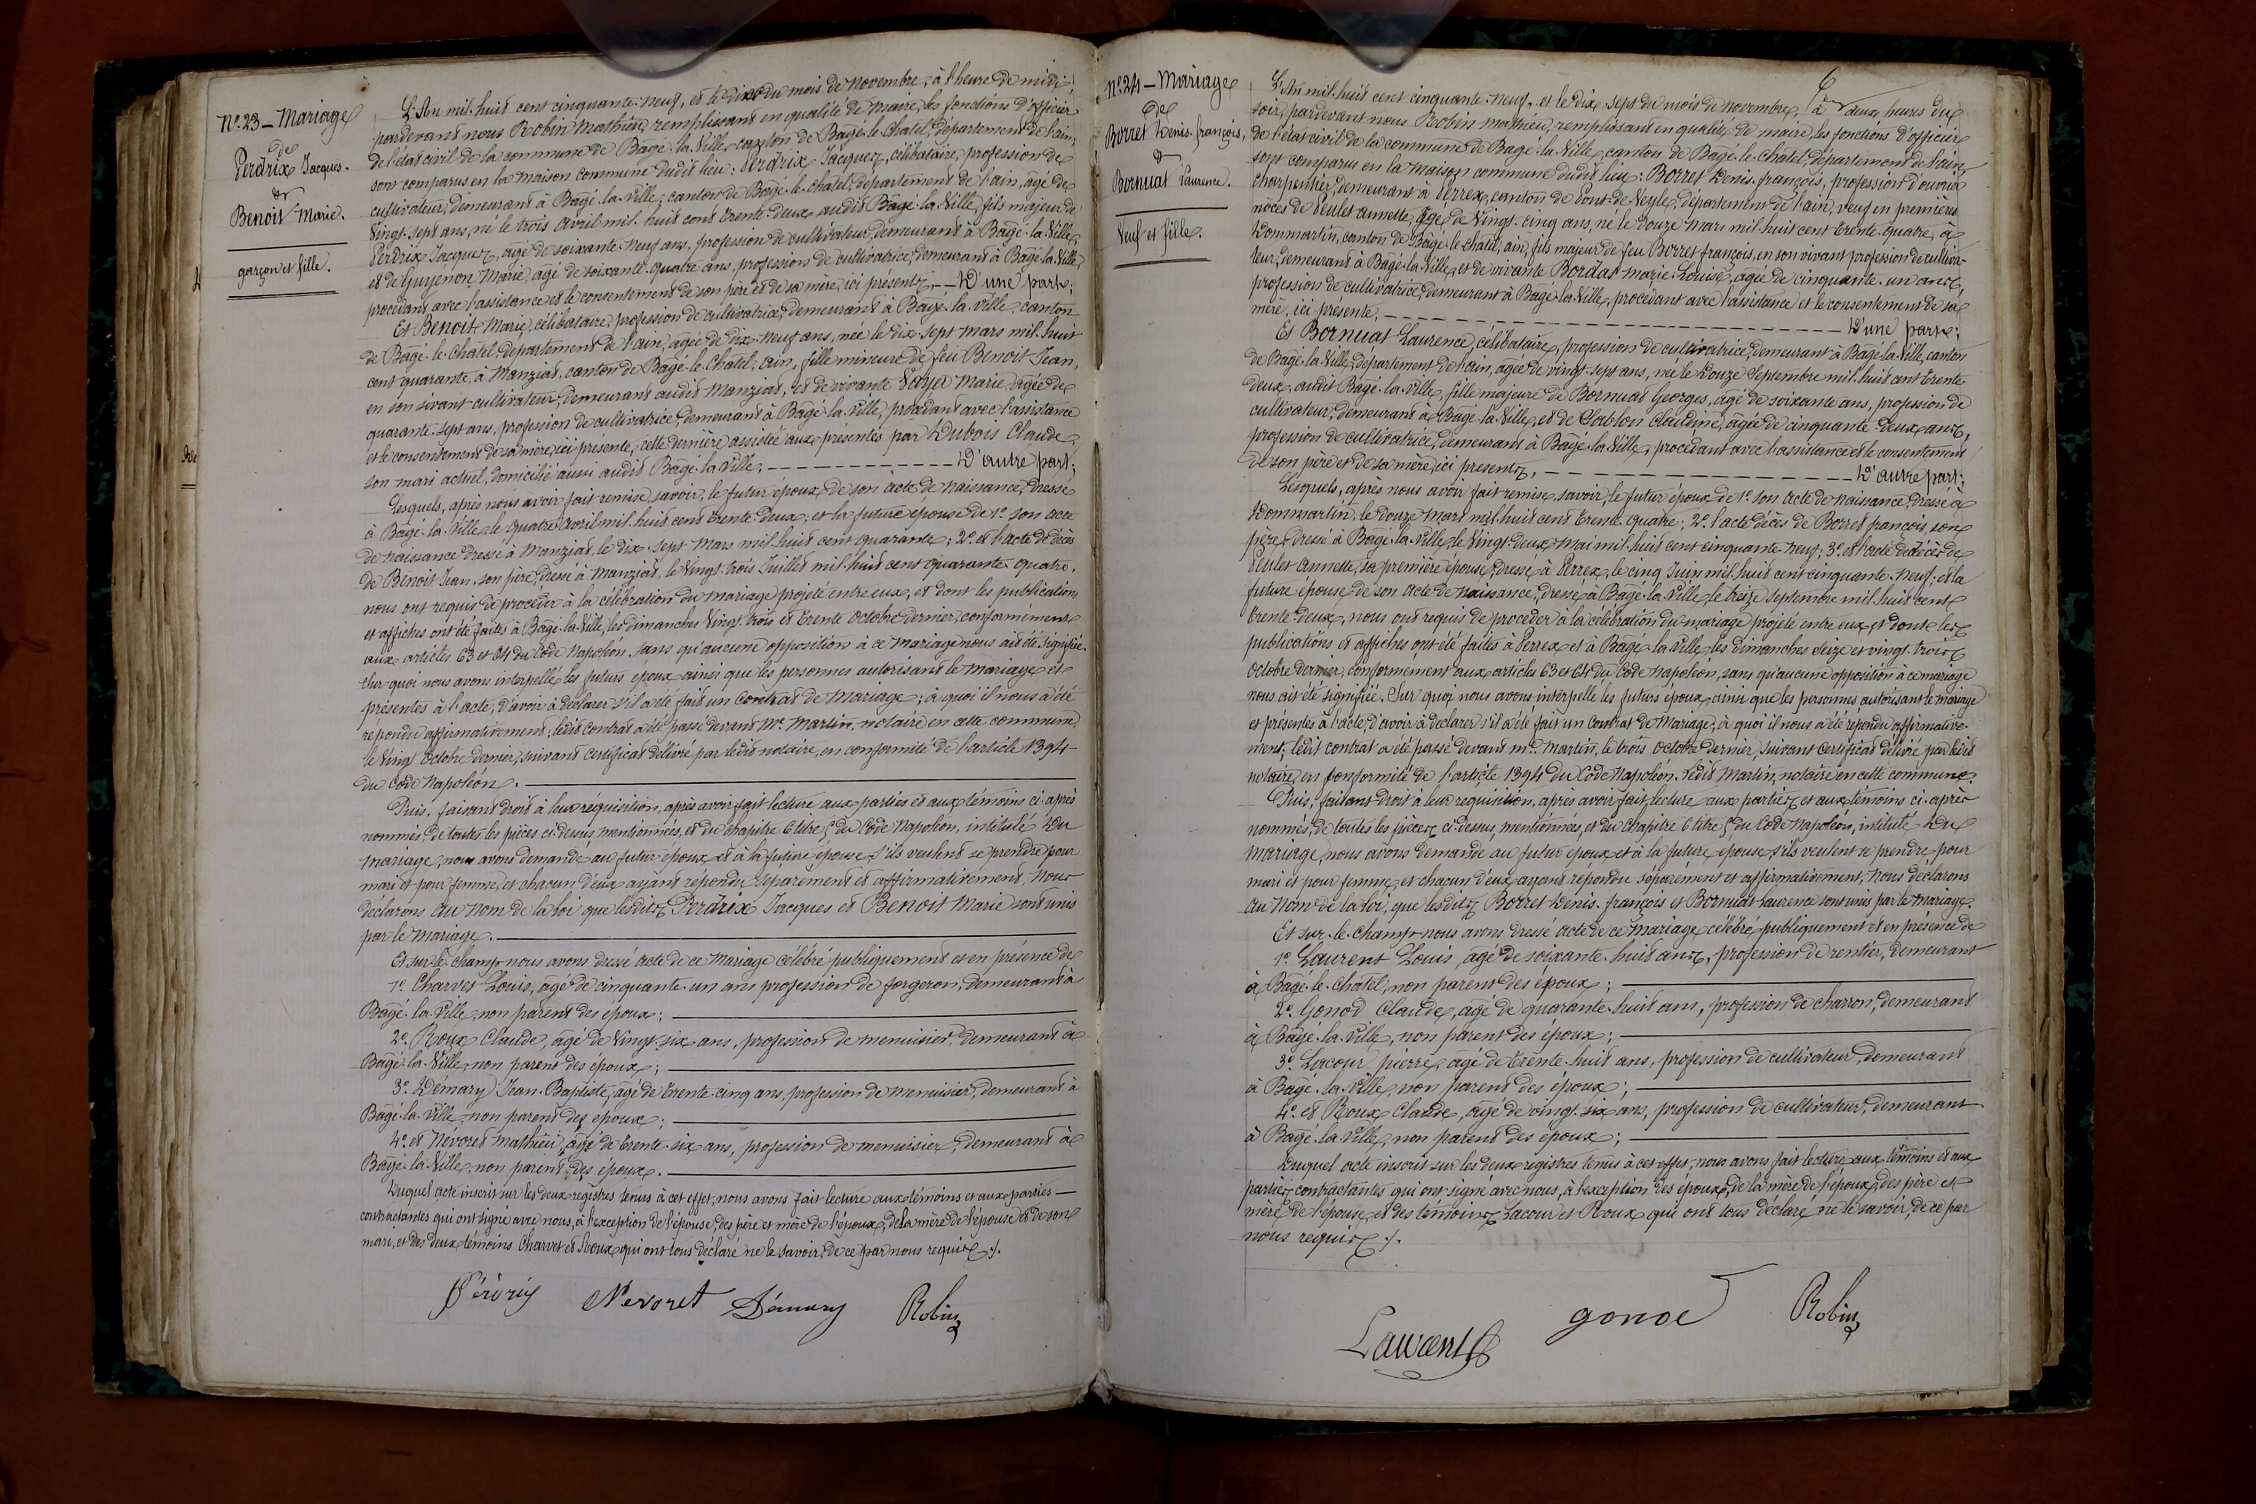 Nº 23 _ Mariage
de
Perdrix Jacques.
&
Benoit Marie.
garçon et fille.
L'An mil huit cent cinquante-neuf, et le dix du mois de Novembre, à l'heure de midi,
pardevant nous Robin Mathieu, remplissant en qualité de Maire, les fonctions d'officier
de l'état civil de la commune de Bagé-la-Ville, canton de Bagé-le-Chatel, département de l'ain,
sont comparus en la maison commune dudit lieu: Perdrix Jacques, célibataire, profession de
cultivateur, demeurant à Bagé-la-Ville, canton de Bagé-le-chatel, département de l'ain, âgé de
vingt-sept ans, né le trois avril mil huit cent trente-deux audit Bagé-la-Ville, fils majeur de
Perdrix Jacques, âgé de soixante-neuf ans, profession de cultivateur, demeurant à Bagé-la-Ville,
et de Guyenon Marie, âgée de soixante-quatre ans, profession de cultivatrice, demeurant à Bagé-la-Ville,
procédant avec l'assistance et le consentement de son père et de sa mère, ici présents, _ D'une part;
Et Benoit Marie, célibataire, profession de cultivatrice, demeurant à Bagé-la-Ville, canton
de Bagé-le-Chatel, département de l'ain, âgée de dix-neuf ans, née le dix-sept mars mil huit
cent quarante, à Manziat, canton de Bagé-le-Chatel, ain, fille mineure de feu Benoit Jean,
en son vivant cultivateur, demeurant audit Manziat, et de vivante Marie, âgée de
quarante-sept ans, profession de cultivatrice, demeurant à Bagé-la-Ville, procédant avec l'assistance
et le consentement de sa mère, ici présente, cette dernière assistée aux présentes par Dubois Claude,
son mari actuel, domicilié aussi audit Bagé-la-Ville, _ D'autre part;
Lesquels, après nous avoir fait remise, savoir, le futur époux, de son acte de naissance, dressé
à Bagé-la-Ville, le quatre avril mil huit cent trente-deux; et la future épouse de 1º son acte
de naissance dressé à Manziat, le dix-sept Mars mil huit cent quarante; 2º et l'acte de décès
de Benoit Jean, son père, dressé à Manziat, le vingt-trois Juillet mil huit cent quarante-quatre,
nous ont requis de procéder à la célébration du mariage projeté entre eux, et dont les publications
et affiches ont été faites à Bagé-la-Ville, les dimanches vingt-trois et trente octobre dernier, conformément
aux articles 63 et 64 du Code Napoléon, sans qu'aucune opposition à ce mariage nous ait été signifiée.
Sur quoi nous avons interpellé les futurs époux ainsi que les personnes autorisant le mariage et
présentes à l'acte, d'avoir à déclarer s'il a été fait un contrat de Mariage; à quoi il nous a été
répondu affirmativement; ledit contrat a été passé devant Me. Martin, notaire en cette commune,
le vingt octobre dernier, suivant certificat délivré par ledit notaire, en conformité de l'article 1394
du Code Napoléon. _
Puis, faisant droit à leur réquisition, après avoir fait lecture aux parties et aux témoins ci-après
nommés, de toutes les pièces ci-dessus mentionnées, et du chapitre 6 titre 5 du Code Napoléon, intitulé Du
Mariage, nous avons demandé au futur époux et à la future épouse s'ils veulent se prendre pour
mari et pour femme, et chacun d'eux ayant répondu séparément et affirmativement, Nous
déclarons au nom de la loi que lesdits Perdrix Jacques et Benoit Marie sont unis
par le Mariage. _
Et sur-le-champ nous avons dressé acte de ce Mariage célébré publiquement et en présence de
1º Charvet Louis, âgé de cinquante-un ans profession de forgeron, demeurant à
Bagé-la-Ville, non parent des époux; _
2º Roux Claude, âgé de vingt-six ans, profession de menuisier, demeurant à
Bagé-la-Ville, non parent des époux; _
3º Démary Jean-Baptiste, âgé de trente-cinq ans, profession de menuisier, demeurant à
Bagé-la-Ville, non parent des époux; _
4º et Névoret Mathieu, âgé de trente-six ans, profession de menuisier, demeurant à
Bagé-la-Ville, non parent des époux. _
Duquel acte inscrit sur les deux registres tenus à cet effet, nous avons fait lecture aux témoins et aux parties _
contractantes qui ont signé avec nous, à l'exception de l'épouse, des père et mère de l'époux, de la mère de l'épouse et de son
mari, et des deux témoins Charvet et Roux qui ont tous déclaré ne le savoir, de ce par nous requis ./.
Nevoret Démary Robin
Nº 24 _ Mariage
de
Borret Denis-françois,
&
Bornuat Laurence.
Veuf et fille.
6
L'An mil huit cent cinquante-neuf, et le dix-sept du mois de novembre, à deux heures du
soir, pardevant nous Robin Mathieu, remplissant en qualité de maire, les fonctions d'officier
de l'état civil de la commune de Bagé-la-Ville, canton de Bagé-le-chatel, département de l'ain,
sont comparus en la maison commune dudit lieu: Borret Denis-françois, profession d'ouvrier
charpentier, demeurant à Perrex, canton de Pont-de-Veyle, département de l'ain, veuf en premières
noces de Peulet annette, âgé de vingt-cinq ans, né le douze mars mil huit cent trente-quatre, à
Dommartin, canton de Bagé-le-chatel, ain, fils majeur de feu Borret françois, en son vivant profession de cultiva-
teur, demeurant à Bagé-la-Ville, et de vivante Bordat Marie-Louise, âgée de cinquante-un ans,
profession de cultivatrice, demeurant à Bagé-la-Ville, procédant avec l'assistance et le consentement de sa
mère, ici présente, _ D'une part;
Et Bornuat Laurence, célibataire, profession de cultivatrice, demeurant à Bagé-la-Ville, canton
de Bagé-la-Ville, département de l'ain, âgée de vingt-sept ans, née le douze septembre mil huit cent trente
deux, audit Bagé-la-Ville, fille majeure de Bornuat Georges, âgé de soixante ans, profession de
cultivateur, demeurant à Bagé-la-Ville, et de Claudine, âgée de cinquante-deux ans,
profession de cultivatrice, demeurant à Bagé-la-Ville, procédant avec l'assistance et le consentement
de son père et de sa mère, ici présents, _ D'autre part;
Lesquels, après nous avoir fait remise, savoir, le futur époux de 1º son acte de naissance, dressé à
Dommartin, le douze Mars mil huit cent trente-quatre; 2º l'acte décès de Borret françois son
père, dressé à Bagé-la-Ville, le vingt-deux mai mil huit cent cinquante-neuf; 3º et l'acte de décès de
Peulet annette, sa première épouse, dressé à Perrex, le cinq Juin mil huit cent cinquante-neuf; et la
future épouse de son acte de naissance, dressé à Bagé-la-Ville, le treize septembre mil huit cent
trente-deux, nous ont requis de procéder à la célébration du mariage projeté entre eux, et dont les
publications et affiches ont été faites à Perrex et à Bagé-la-Ville, les dimanches seize et vingt-trois
octobre dernier, conformément aux articles 63 et 64 du Code Napoléon, sans qu'aucune opposition à ce mariage
nous ait été signifiée. Sur quoi nous avons interpellé les futurs époux, ainsi que les personnes autorisant le mariage
et présentes à l'acte, d'avoir à déclarer s'il a été fait un contrat de Mariage; à quoi il nous a été répondu affirmative-
ment; ledit contrat a été passé devant Me. Martin, le trois octobre dernier, suivant certificat délivré par ledit
notaire, en conformité de l'article 1394 du Code Napoléon. Ledit Martin, notaire en cette commune.
Puis, faisant droit à leur réquisition, après avoir fait lecture aux parties et aux témoins ci-après
nommés, de toutes les pièces ci-dessus, mentionnées, et du chapitre 6 titre 5 du Code Napoléon, intitulé Du
mariage, nous avons demandé au futur époux et à la future épouse, s'ils veulent se prendre pour
mari et pour femme, et chacun d'eux ayant répondu séparément et affirmativement, Nous déclarons
au nom de la loi, que lesdits Borret Denis-françois et Bornuat Laurence sont unis par le mariage.
Et sur-le-champ nous avons dressé acte de ce Mariage célébré publiquement et en présence de
1º Laurent Louis, âgé de soixante-huit ans, profession de rentier, demeurant
à Bagé-le-Chatel, non parent des époux; _
2º Gonod Claude, âgé de quarante-huit ans, profession de charron, demeurant
à Bagé-la-Ville, non parent des époux; _
3º Lacour pierre, âgé de trente-huit ans, profession de cultivateur, demeurant
à Bagé-la-Ville, non parent des époux; _
4º et Roux Claude, âgé de vingt-six ans, profession de cultivateur, demeurant
à Bagé-la-Ville, non parent des époux; _
Duquel acte inscrit sur les deux registres tenus à cet effet, nous avons fait lecture aux témoins et aux
parties contractantes qui ont signé avec nous, à l'exception des époux, de la mère de l'époux, des père et
mère de l'épouse, et des témoins Lacour et Roux qui ont tous déclaré ne le savoir, de ce par
nous requis ./.
Laurent gonod Robin